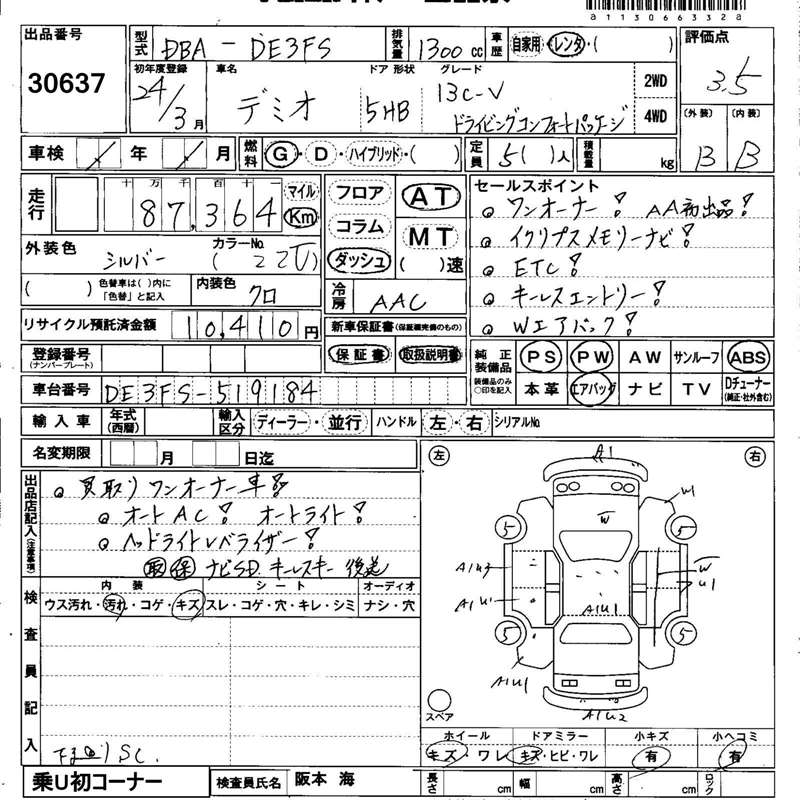 a113066332a
出品番号 30637
型式 DBA - DE3FS 排気量 1300 cc 車歴 自家用・レンタ・( ) 評価点 3.5
初年度登録 24/3月 車名 デミオ ドア 形状 5HB グレード 13C-V ドライビングコンフォートパッケージ 2WD 4WD
(外装) B (内装) B
車検 / 年 / 月 燃料 G・D・ハイブリッド・( ) 定員 5( )人 積載量 kg
走行 十 万 千 百 十 一 87,364 マイル Km
フロア コラム ダッシュ AT MT ( )速
セールスポイント
◎ ワンオーナー! AA初出品!
◎ イクリプスメモリーナビ!
◎ ETC!
◎ キーレスエントリー!
◎ Wエアバック!
外装色 シルバー カラーNo. (22V)
( ) 色替車は( )内に「色替」と記入 内装色 クロ
冷房 AAC
リサイクル預託済金額 10,410円
新車保証書(保証継続完備のもの)
保証書 取扱説明書
登録番号(ナンバープレート)
純正装備品 装備品のみ○印を記入 PS PW AW サンルーフ ABS
本革 エアバッグ ナビ TV Dチューナー(純正・社外含む)
車台番号 DE3FS-519184
輸入車 年式(西暦) 輸入区分 ディーラー・並行 ハンドル 左・右 シリアルNo.
名変期限 月 日迄
出品店記入(注意事項)
◎ 買取りワンオーナー車!
◎ オートAC! オートライト!
◎ ヘッドライトレベライザー!
取 保 ナビSD. キーレスキー 後送
左 右
A1
W1
W
5 5
A1U3
W
U1
A1U1
A1U1
5 5
A1U1
A1U2
スペア
検査員記入
内装 シート オーディオ
ウス汚れ・汚れ・コゲ・キズ スレ・コゲ・穴・キレ・シミ ナシ・穴
下廻りSC.
ホイール ドアミラー 小キズ 小ヘコミ
キズ・ワレ キズ・ヒビ・ワレ 有 有
乗U初コーナー 検査員氏名 阪本 海 長さ cm 幅 cm 高さ cm ロック